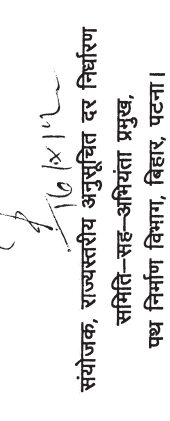 16/x/12
संयोजक, राज्यस्तरीय अनुसूचित दर निर्धारण
समिति–सह–अभियंता प्रमुख,
पथ निर्माण विभाग, बिहार, पटना।